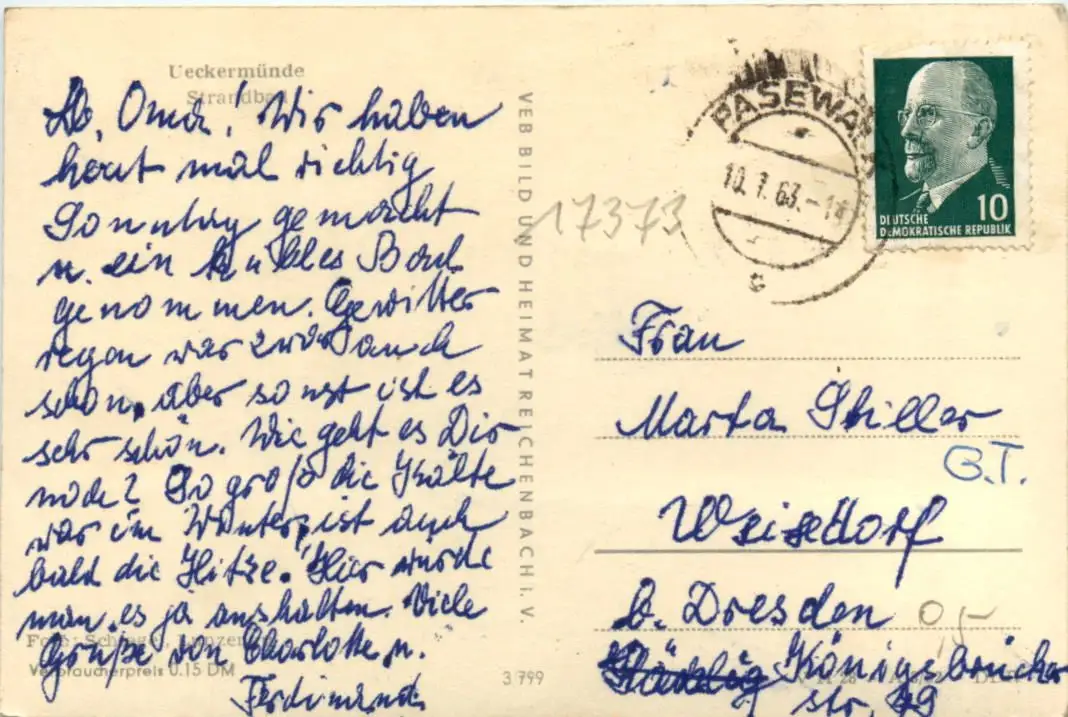 Ueckermünde
Strandbad
Lb. Oma! Wir haben
heut mal richtig
Sonntag gemacht
u. ein kühles Bad
genommen. Gewitter
regen war zwar auch
schon, aber sonst ist es
sehr schön. Wie geht es Dir
noch? So groß die Kälte
war im Winter, ist auch
bald die Hitze. Hier würde
man es ja aushalten. Viele
Grüße von Charlotte u.
Ferdinand
Foto:
Verbraucherpreis 0.15 DM
VEB BILD UND HEIMAT REICHENBACH I. V.
3 799
17373
PASEWA
63.
c
DEUTSCHE
DEMOKRATISCHE REPUBLIK
10
Frau
Marta Stiller
G.T.
Weisdorf
b. Dresden
0,-
Königsbrücker
str.